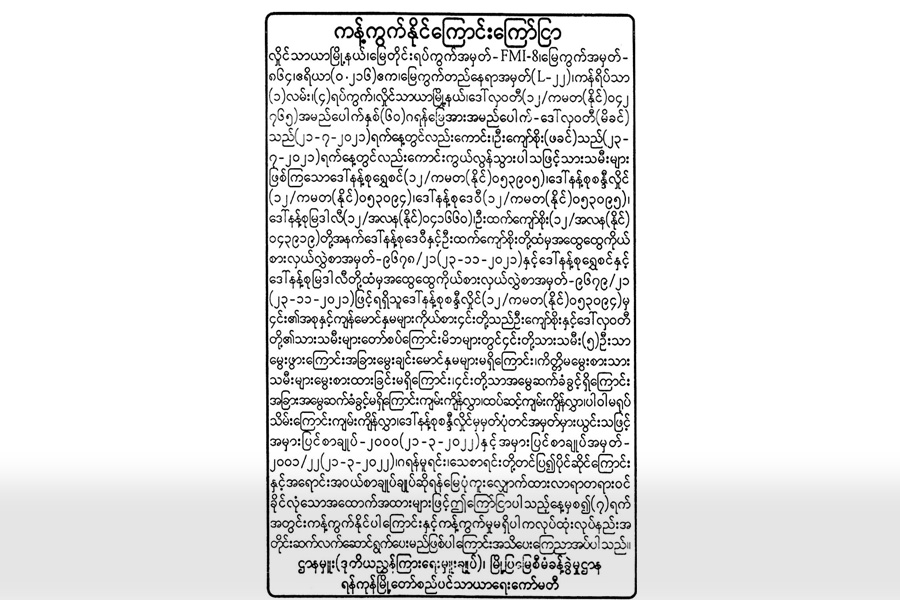 ကန့်ကွက်နိုင်ကြောင်းကြော်ငြာ
လှိုင်သာယာမြို့နယ်၊မြေတိုင်းရပ်ကွက်အမှတ်-FMI-8၊မြေကွက်အမှတ်-
၈၆၄၊ဧရိယာ(၀.၂၁၆)ဧက၊မြေကွက်တည်နေရာအမှတ်(L-၂၂)၊ကန်ရိပ်သာ
(၁)လမ်း၊(၄)ရပ်ကွက်၊လှိုင်သာယာမြို့နယ်၊ဒေါ်လှဝတီ(၁၂/ကမတ(နိုင်)၀၄၂
၇၆၅)အမည်ပေါက်နှစ်(၆၀)ဂရန်မြေအားအမည်ပေါက်-ဒေါ်လှဝတီ(မိခင်)
သည်(၂၁-၇-၂၀၂၁)ရက်နေ့တွင်လည်းကောင်း၊ဦးကျော်စိုး(ဖခင်)သည်(၂၃-
၇-၂၀၂၁)ရက်နေ့တွင်လည်းကောင်းကွယ်လွန်သွားပါသဖြင့်သားသမီးများ
ဖြစ်ကြသောဒေါ်နန့်စုရွှေစင်(၁၂/ကမတ(နိုင်)၀၅၃၉၀၅)၊ဒေါ်နန့်စုစန္ဒီလှိုင်
(၁၂/ကမတ(နိုင်)၀၅၃၀၉၄)၊ဒေါ်နန့်စုဒေဝီ(၁၂/ကမတ(နိုင်)၀၅၃၀၉၅)၊
ဒေါ်နန့်စုမြဒါလီ(၁၂/အလန(နိုင်)၀၄၁၆၆၀)၊ဦးထက်ကျော်စိုး(၁၂/အလန(နိုင်)
၀၄၃၉၁၉)တို့အနက်ဒေါ်နန့်စုဒေဝီနှင့်ဦးထက်ကျော်စိုးတို့ထံမှအထွေထွေကိုယ်
စားလှယ်လွှဲစာအမှတ်-၉၆၇၈/၂၁(၂၃-၁၁-၂၀၂၁)နှင့်ဒေါ်နန့်စုရွှေစင်နှင့်
ဒေါ်နန့်စုမြဒါလီတို့ထံမှအထွေထွေကိုယ်စားလှယ်လွှဲစာအမှတ်-၉၆၇၉/၂၁
(၂၃-၁၁-၂၀၂၁)ဖြင့်ရရှိသူဒေါ်နန့်စုစန္ဒီလှိုင်(၁၂/ကမတ(နိုင်)၀၅၃၀၉၄)မှ
၄င်း၏အစုနှင့်ကျန်မောင်နှမများကိုယ်စား၄င်းတို့သည်ဦးကျော်စိုးနှင့်ဒေါ်လှဝတီ
တို့၏သားသမီးများတော်စပ်ကြောင်းမိဘများတွင်၄င်းတို့သားသမီး(၅)ဦးသာ
မွေးဖွားကြောင်းအခြားမွေးချင်းမောင်နှမများမရှိကြောင်း၊ကိတ္တိမမွေးစားသား
သမီးများမွေးစားထားခြင်းမရှိကြောင်း၊၄င်းတို့သာအမွေဆက်ခံခွင့်ရှိကြောင်း
အခြားအမွေဆက်ခံခွင့်မရှိကြောင်းကျမ်းကျိန်လွှာ၊ထပ်ဆင့်ကျမ်းကျိန်လွှာ၊ပါဝါမရုပ်
သိမ်းကြောင်းကျမ်းကျိန်လွှာ၊ဒေါ်နန့်စုစန္ဒီလှိုင်မှမှတ်ပုံတင်အမှတ်မှားယွင်းသဖြင့်
အမှားပြင်စာချုပ်-၂၀၀၀(၂၁-၃-၂၀၂၂)နှင့်အမှားပြင်စာချုပ်အမှတ်-
၂၀၀၁/၂၂(၂၁-၃-၂၀၂၂)၊ဂရန်မူရင်း၊သေစာရင်းတို့တင်ပြ၍ပိုင်ဆိုင်ကြောင်း
နှင့်အရောင်းအဝယ်စာချုပ်ချုပ်ဆိုရန်မြေပုံကူးလျှောက်ထားလာရာတရားဝင်
ခိုင်လုံသောအထောက်အထားများဖြင့်ဤကြော်ငြာပါသည့်နေ့မှစ၍(၇)ရက်
အတွင်းကန့်ကွက်နိုင်ပါကြောင်းနှင့်ကန့်ကွက်မှုမရှိပါကလုပ်ထုံးလုပ်နည်းအ
တိုင်းဆက်လက်ဆောင်ရွက်ပေးမည်ဖြစ်ပါကြောင်းအသိပေးကြေညာအပ်ပါသည်။
ဌာနမှူး(ဒုတိယညွှန်ကြားရေးမှူးချုပ်)၊ မြို့ပြမြေစီမံခန့်ခွဲမှုဌာန
ရန်ကုန်မြို့တော်စည်ပင်သာယာရေးကော်မတီ